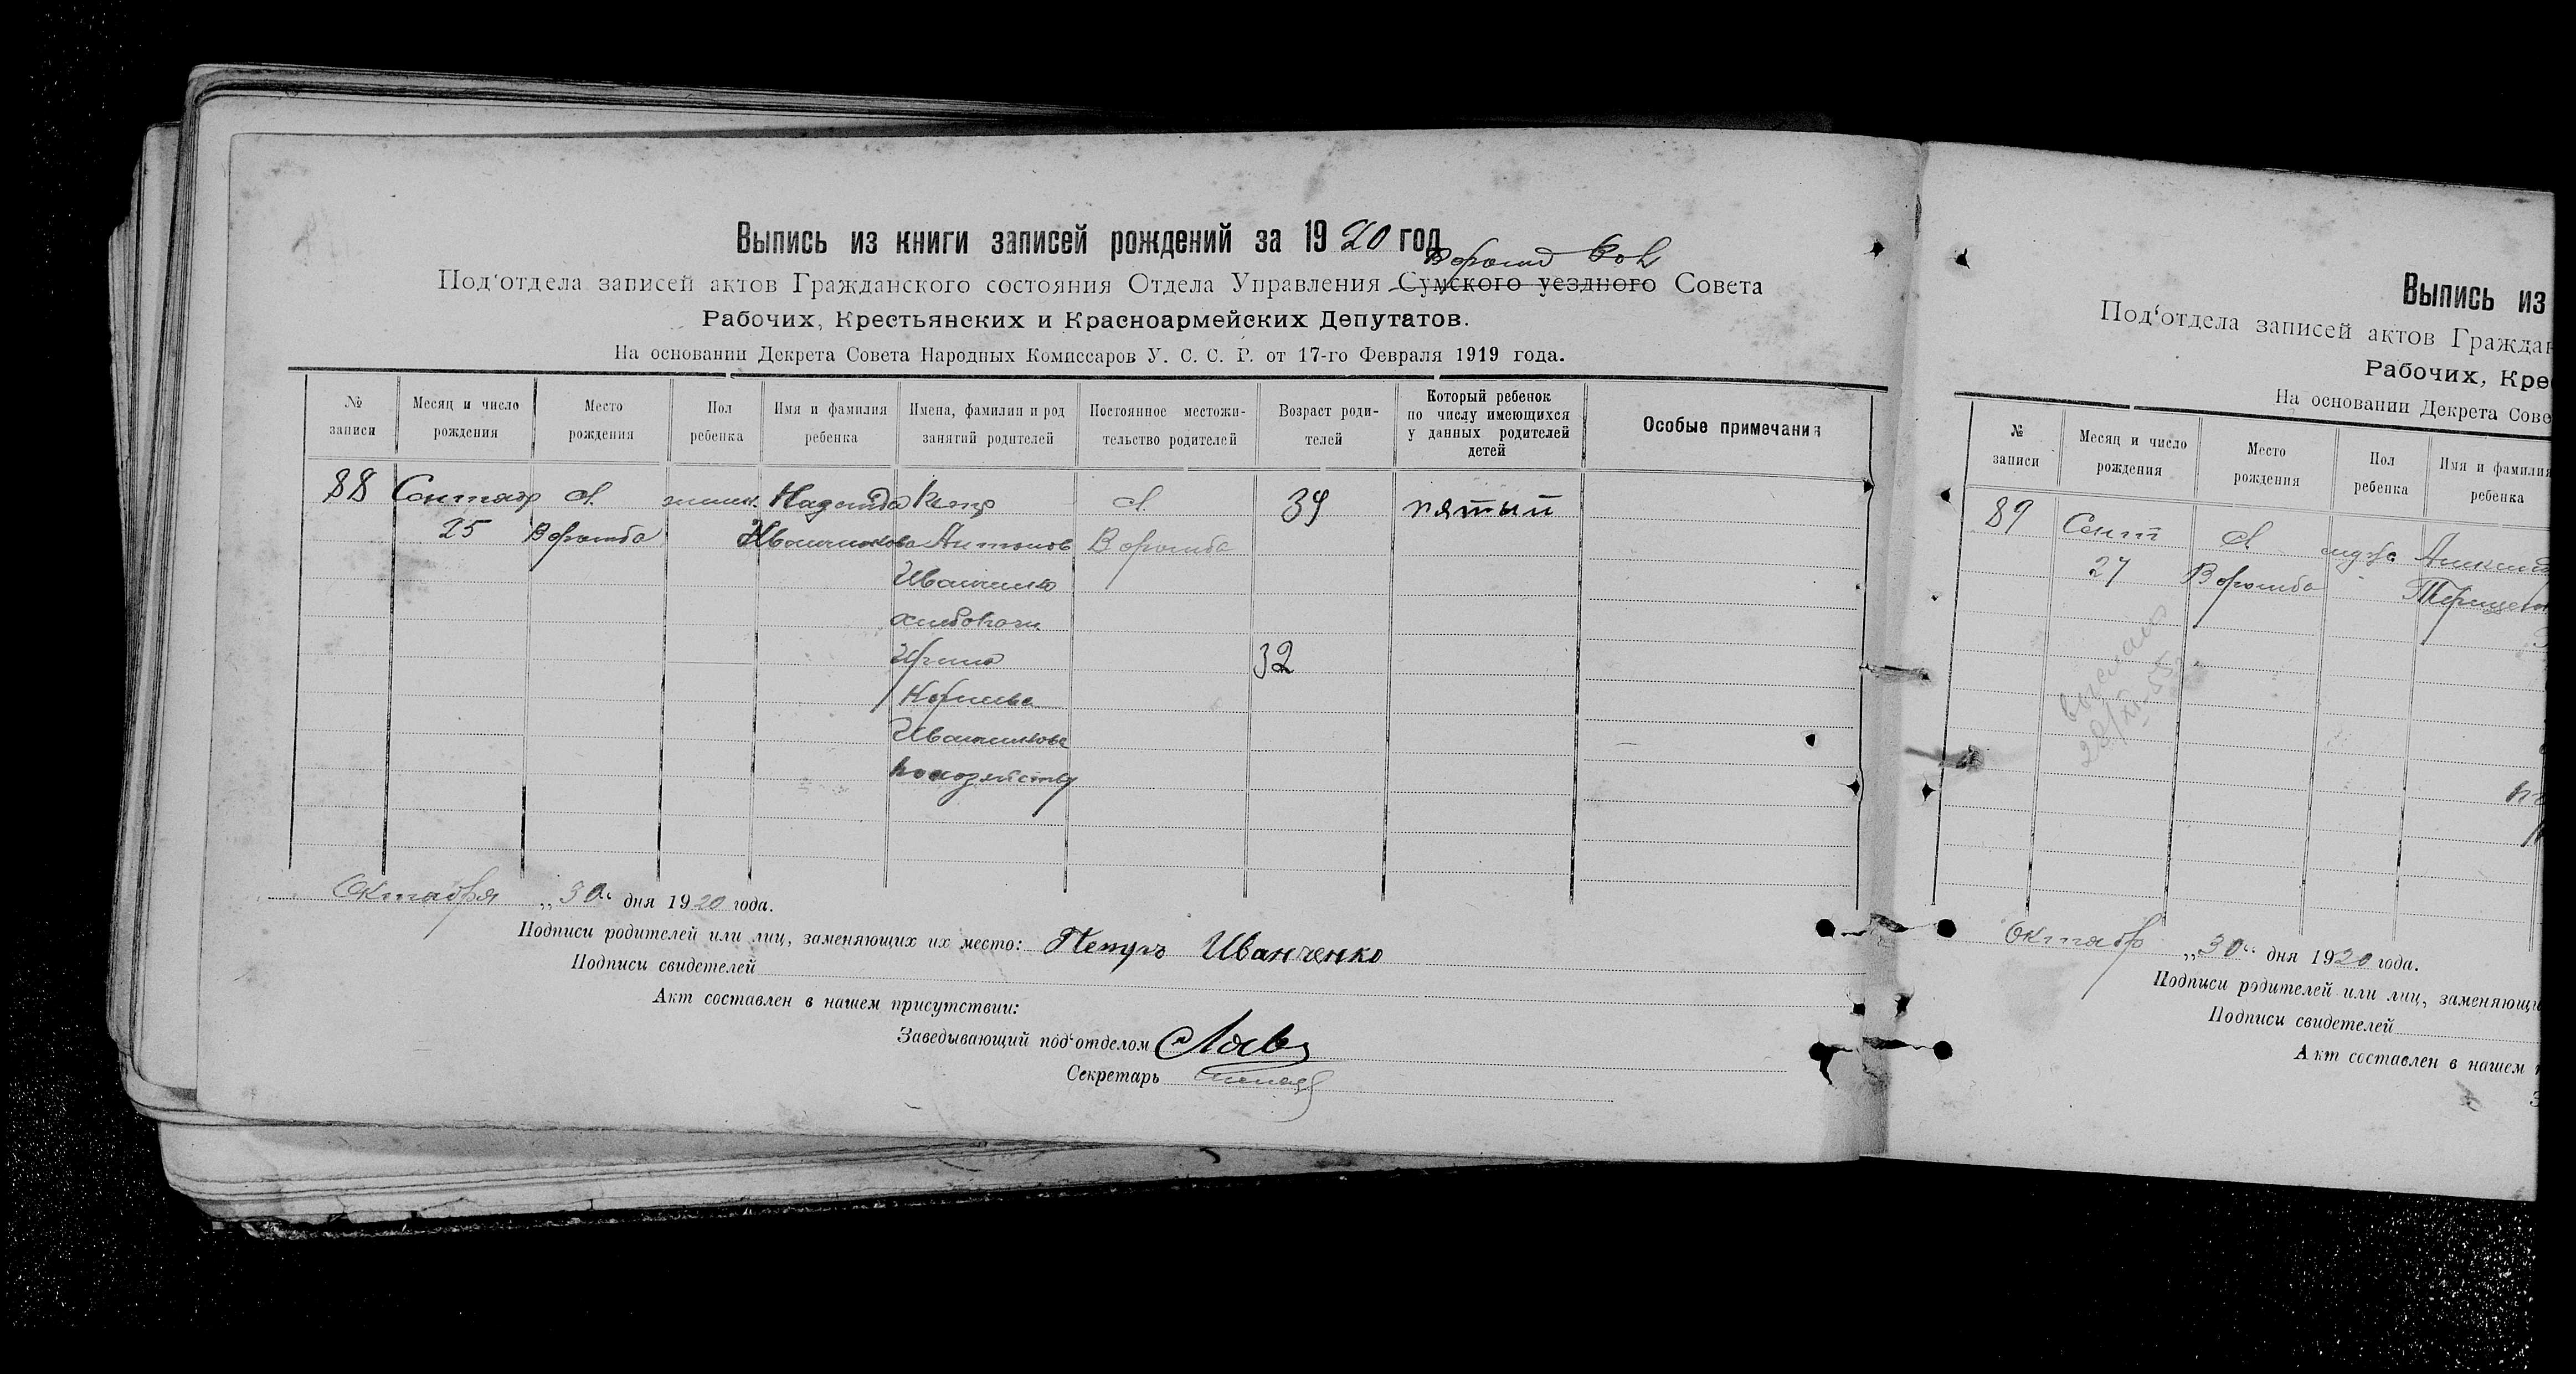 Выпись из книги записей рождений за 1920 год
Ворожб
Под'отдела записей актов Гражданского состояния Отдела Управления Сумского уездного Совета
Рабочих, Крестьянских и Красноармейских Депутатов.
На основании Декрета Совета Народных Комиссаров У. С. С. Р. от 17-го Февраля 1919 года.
№ записи
Месяц и число рождения
Место рождения
Пол ребенка
Имя и фамилия ребенка
Имена, фамилии и род занятий родителей
Постоянное местожительство родителей
Возраст родителей
Который ребенок по числу имеющихся у данных родителей детей
Особые примечания
88 Сентябр с. женск. Надежда Петр с. 39 пятый
25 Ворожба Иванченкова Антонов Ворожба
Иванченко
хлебопаш
Ирина 32
Корнеева
Иванченкова
по хозяйству
Октября „30“ дня 1920 года.
Подписи родителей или лиц, заменяющих их место: Петръ Иванченко
Подписи свидетелей
Акт составлен в нашем присутствии:
Заведывающий под'отделом
Секретарь
Выпись из
Под'отдела записей актов Граждан
Рабочих, Кре
На основании Декрета Сове
№ записи
Месяц и число рождения
Место рождения
Пол ребенка
Имя и фамилия ребенка
89 Сент с.
27 Ворожба
22/XI-55
Октябр „30“ дня 1920 года.
Подписи родителей или лиц, заменяющи
Подписи свидетелей
Акт составлен в нашем